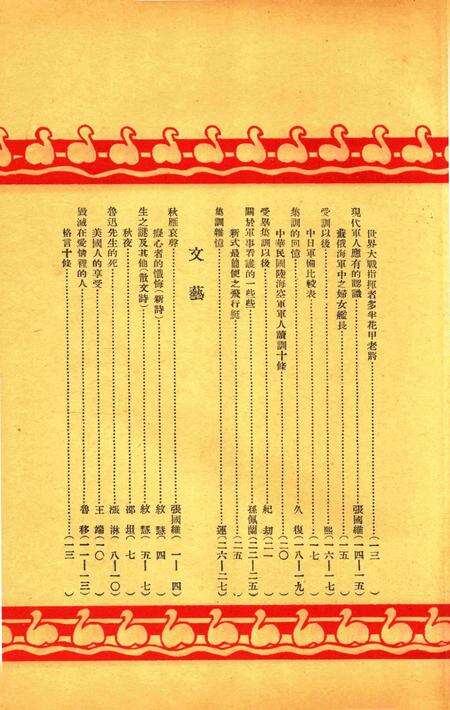 世界大戰指揮者多半花甲老將……(一三)
現代軍人應有的認識……張國維(一四—一五)
蘇俄海軍中之婦女艦長……(一五)
受訓以後……熙(一六—一七)
中日軍備比較表……(一七)
集訓的回憶……久復(一八—一九)
中華民國陸海空軍軍人讀訓十條……(二〇)
受畢集訓以後……紀初(二一)
關於軍事看護的一些些……孫佩蘭(二二—二五)
新式最簡便之飛行艇……(二五)
集訓雜憶……運(二六—二七)
文藝
秋雁哀聲……張國維(一—四)
癡心者的懺悔(新詩)……紋慧(四)
生之謎及其他(散文詩)……紋慧(五—七)
秋夜……邵坦(七)
魯迅先生的死……張淋(八—一〇)
美國人的享受……王端(一〇)
毀滅在愛情裡的人……魯移(一一—一三)
格言十條……(一三)